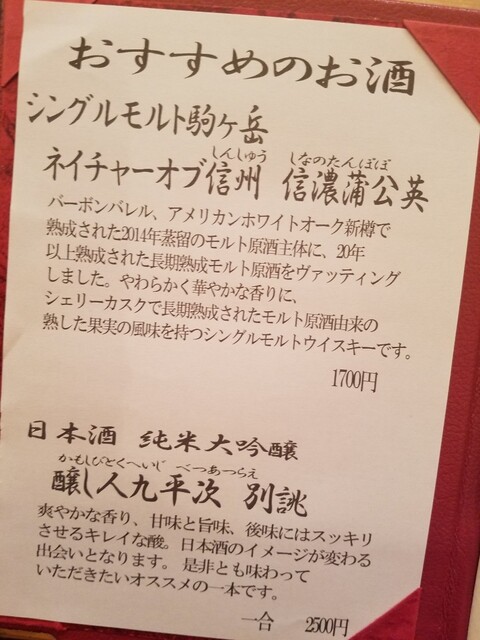 おすすめのお酒
シングルモルト駒ヶ岳
しんしゅう しなのたんぽぽ
ネイチャーオブ信州 信濃蒲公英
バーボンバレル、アメリカンホワイトオーク新樽で
熟成された2014年蒸留のモルト原酒主体に、20年
以上熟成された長期熟成モルト原酒をヴァッティング
しました。やわらかく華やかな香りに、
シェリーカスクで長期熟成されたモルト原酒由来の
熟した果実の風味を持つシングルモルトウイスキーです。
1700円
日本酒 純米大吟醸
かもしびとくへいじ べつあつらえ
醸し人九平次 別誂
爽やかな香り、甘味と旨味、後味にはスッキリ
させるキレイな酸。日本酒のイメージが変わる
出会いとなります。 是非とも味わって
いただきたいオススメの一本です。
一合 2500円